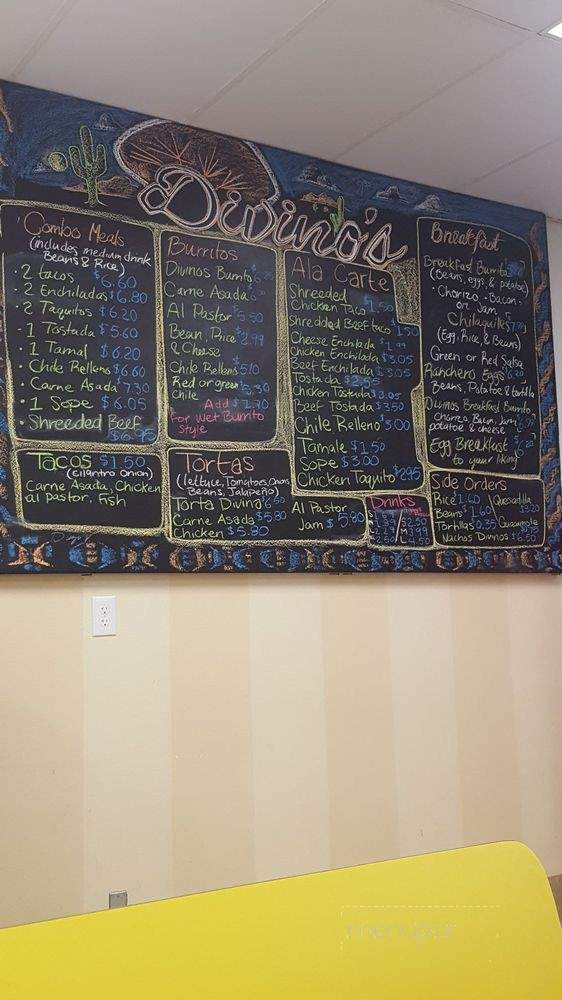 Divino's
Combo Meals
(includes medium drink
Beans & Rice)
· 2 tacos $6.60
· 2 Enchiladas $6.80
· 2 Taquitos $6.20
· 1 Tostada $5.60
· 1 Tamal $6.20
· Chile Rellens $6.60
· Carne Asada 7.30
· 1 Sope $6.05
· Shreeded Beef
$6.95
Burritos
Divinos Burrito
Carne Asada
Al Pastor 5.50
Bean, Rice $2.99
& Cheese
Chile Rellens 5.10
Red or green
Chile
Add $1.70
For Wet Burrito
Style
Ala Carte
Shreeded
Chicken Taco 1.50
Shredded Beef taco 1.50
Cheese Enchilada $1.99
Chicken Enchilada $3.05
Beef Enchilada $3.05
Tostada $2.55
Chicken Tostada $3.05
Beef Tostada $3.50
Chile Relleno $3.00
Tamale $1.50
Sope $3.00
Chicken Taquito $2.95
Breakfast
Breakfast Burrito
(Beans, eggs, & potatoe)
· Chorizo · Bacon ·
or Jam
Chilaquiles
(Egg, Rice, & Beans)
Green or Red Salsa
Ranchero Eggs
Beans, Potatoe & tortilla
Divinos Breakfast Burrito
Chorizo, Bacon, Jam
potatoe & cheese
Egg Breakfast
to your liking
Tacos $1.50
(cilantro onion)
Carne Asada, Chicken
al pastor, Fish
Tortas
(lettuce, Tomatoes, Onions
Beans, Jalapeño)
Torta Divina 6.50
Carne Asada $5.80
Chicken $5.80
Al Pastor
Jam $5.80
Drinks
Side Orders
Rice 1.60
Quesadilla
Beans $1.60
$3.20
Tortillas 0.35
Guacamole
Nachos Divinos $6.50
menupix